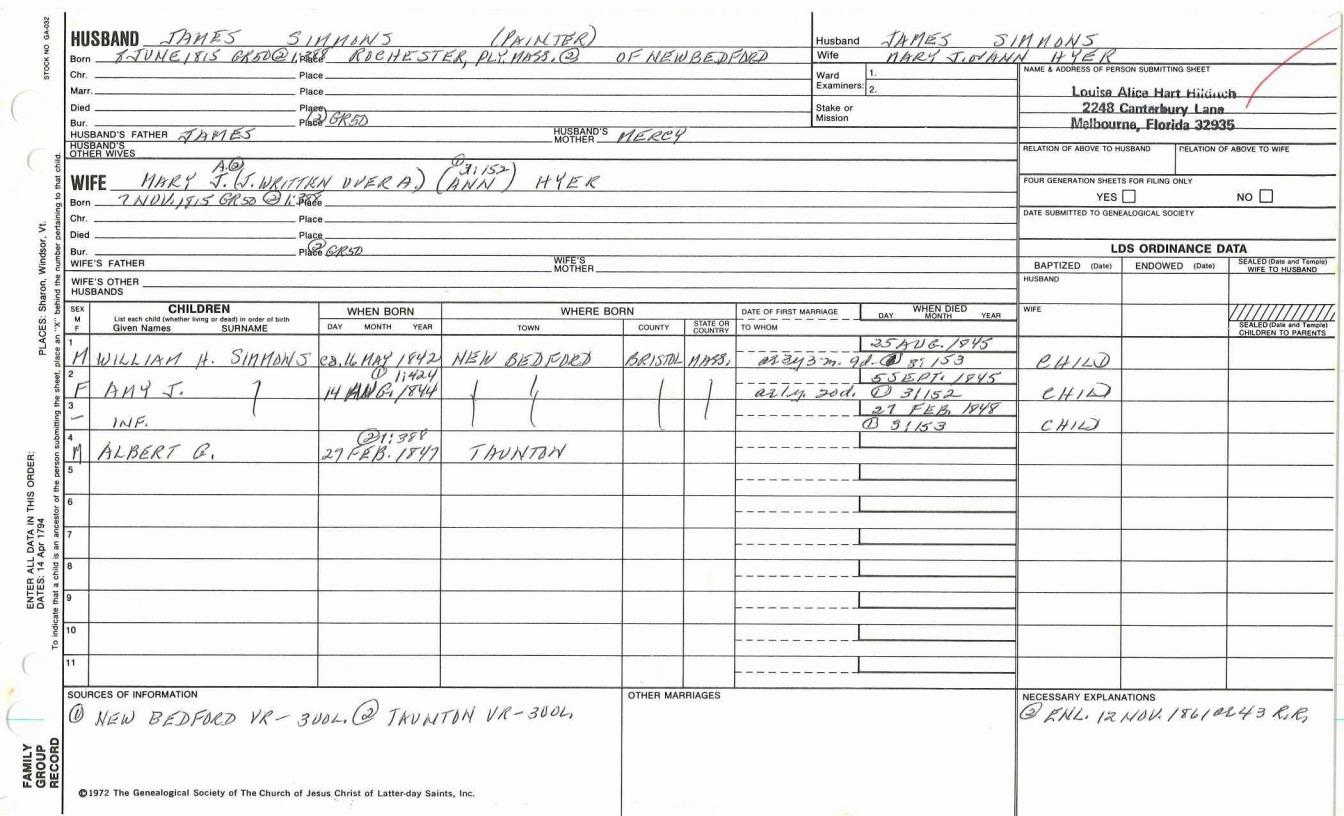 STOCK NO. GA-032
HUSBAND JAMES SIMMONS (PAINTER)
Born 8 JUNE 1815 GR50 ② 1:388 Place ROCHESTER, PLY. MASS. ② OF NEW BEDFORD
Chr. Place
Marr. Place
Died Place
Bur. Place ② GR50
HUSBAND'S FATHER JAMES HUSBAND'S MOTHER MERCY
HUSBAND'S OTHER WIVES
A.② ① 3:152
WIFE MARY J. (J. WRITTEN OVER A.) (ANN) HYER
Born 7 NOV. 1815 GR50 ② 1:388 Place
Chr. Place
Died Place
Bur. Place ② GR50
WIFE'S FATHER WIFE'S MOTHER
WIFE'S OTHER HUSBANDS
Husband JAMES SIMMONS
Wife MARY J. or ANN HYER
Ward 1.
Examiners: 2.
Stake or
Mission
NAME & ADDRESS OF PERSON SUBMITTING SHEET
Louise Alice Hart
2248 Canterbury Lane
Melbourne, Florida 32935
RELATION OF ABOVE TO HUSBAND RELATION OF ABOVE TO WIFE
FOUR GENERATION SHEETS FOR FILING ONLY
YES NO
DATE SUBMITTED TO GENEALOGICAL SOCIETY
LDS ORDINANCE DATA
BAPTIZED (Date) ENDOWED (Date) SEALED (Date and Temple) WIFE TO HUSBAND
HUSBAND
WIFE
SEALED (Date and Temple) CHILDREN TO PARENTS
SEX M F CHILDREN WHEN BORN WHERE BORN DATE OF FIRST MARRIAGE WHEN DIED
List each child (whether living or dead) in order of birth
Given Names SURNAME DAY MONTH YEAR TOWN COUNTY STATE OR COUNTRY TO WHOM DAY MONTH YEAR
25 AUG. 1845
1 M WILLIAM H. SIMMONS ca. 16 MAY 1842 NEW BEDFORD BRISTOL MASS. a. 3y 3m. 9d. ① 3:153 CHILD
① 1:424 5 SEPT. 1845
2 F AMY J. 14 AUG. 1844 a. 1y. 20d. ① 3:152 CHILD
27 FEB. 1848
3 – INF. ① 3:153 CHILD
② 1:388
4 M ALBERT G. 27 FEB. 1847 TAUNTON
5
6
7
8
9
10
11
SOURCES OF INFORMATION
① NEW BEDFORD VR – 3 VOL. ② TAUNTON VR – 3 VOL.
OTHER MARRIAGES
NECESSARY EXPLANATIONS
② ENL. 12 NOV. 1861 a 43 R.R.
©1972 The Genealogical Society of The Church of Jesus Christ of Latter-day Saints, Inc.
FAMILY
GROUP
RECORD
ENTER ALL DATA IN THIS ORDER:
DATES: 14 Apr 1794 PLACES: Sharon, Windsor, Vt.
To indicate that a child is an ancestor of the person submitting the sheet, place an "X" behind the number pertaining to that child.